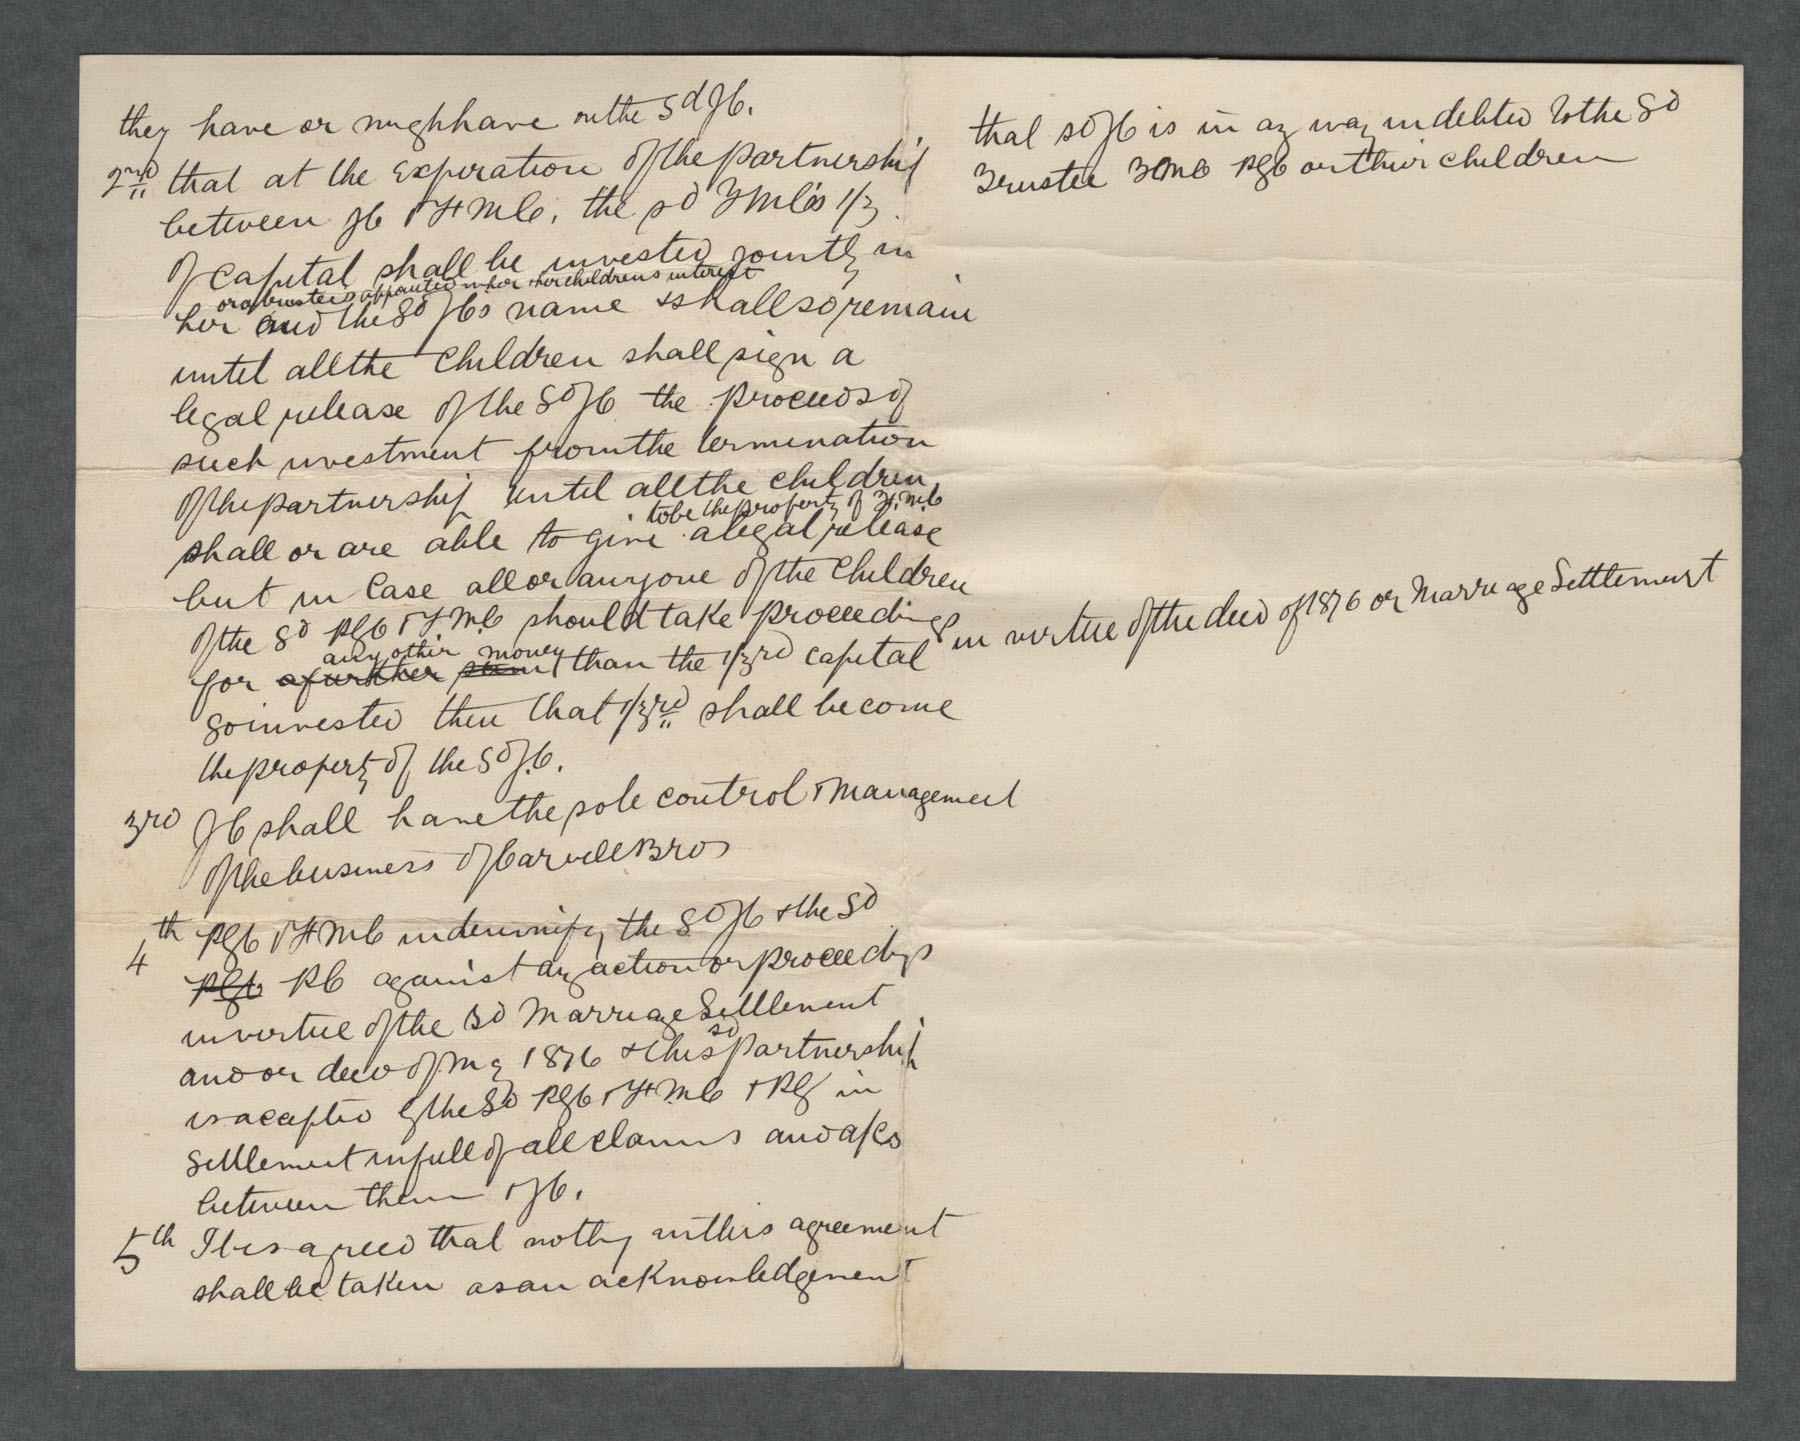 they have or migh have on the Sd JC.
2nd that at the expiration of the partnership
between JC & HMC, the sd HMC's 1/3
of capital shall be invested jointly in
or a trustee appointed in her & her childrens interest
her and the Sd JC's name & shall so remain
until all the children shall sign a
legal release of the Sd JC the proceeds of
such investment from the termination
of the partnership until all the children
to be the property of H.M.C
shall or are able to give a legal release
but in case all or any one of the children
of the Sd RJC & HMC should take proceedings in virtue of the deed of 1876 or Marriage Settlement
any other money
for a further sum than the 1/3rd capital
so invested then that 1/3rd shall become
the property of the Sd J.C.
3rd JC shall have the sole control & management
of the business of Carvell Bros
4th RJC & HMC indemnify the Sd JC & the Sd
RJC RC against ay action or proceedgs
in virtue of the Sd Marriage Settlement
sd
and or deed of My 1876 & this partnership
is accepted by the Sd RJC & HMC & RJ in
settlement in full of all claims and a/cs
between them & JC.
5th It is agreed that nothg in this agreement
shall be taken as an acknowledgement
that sd JC is in ay way indebted to the Sd
Trustee HMC RJC or their children